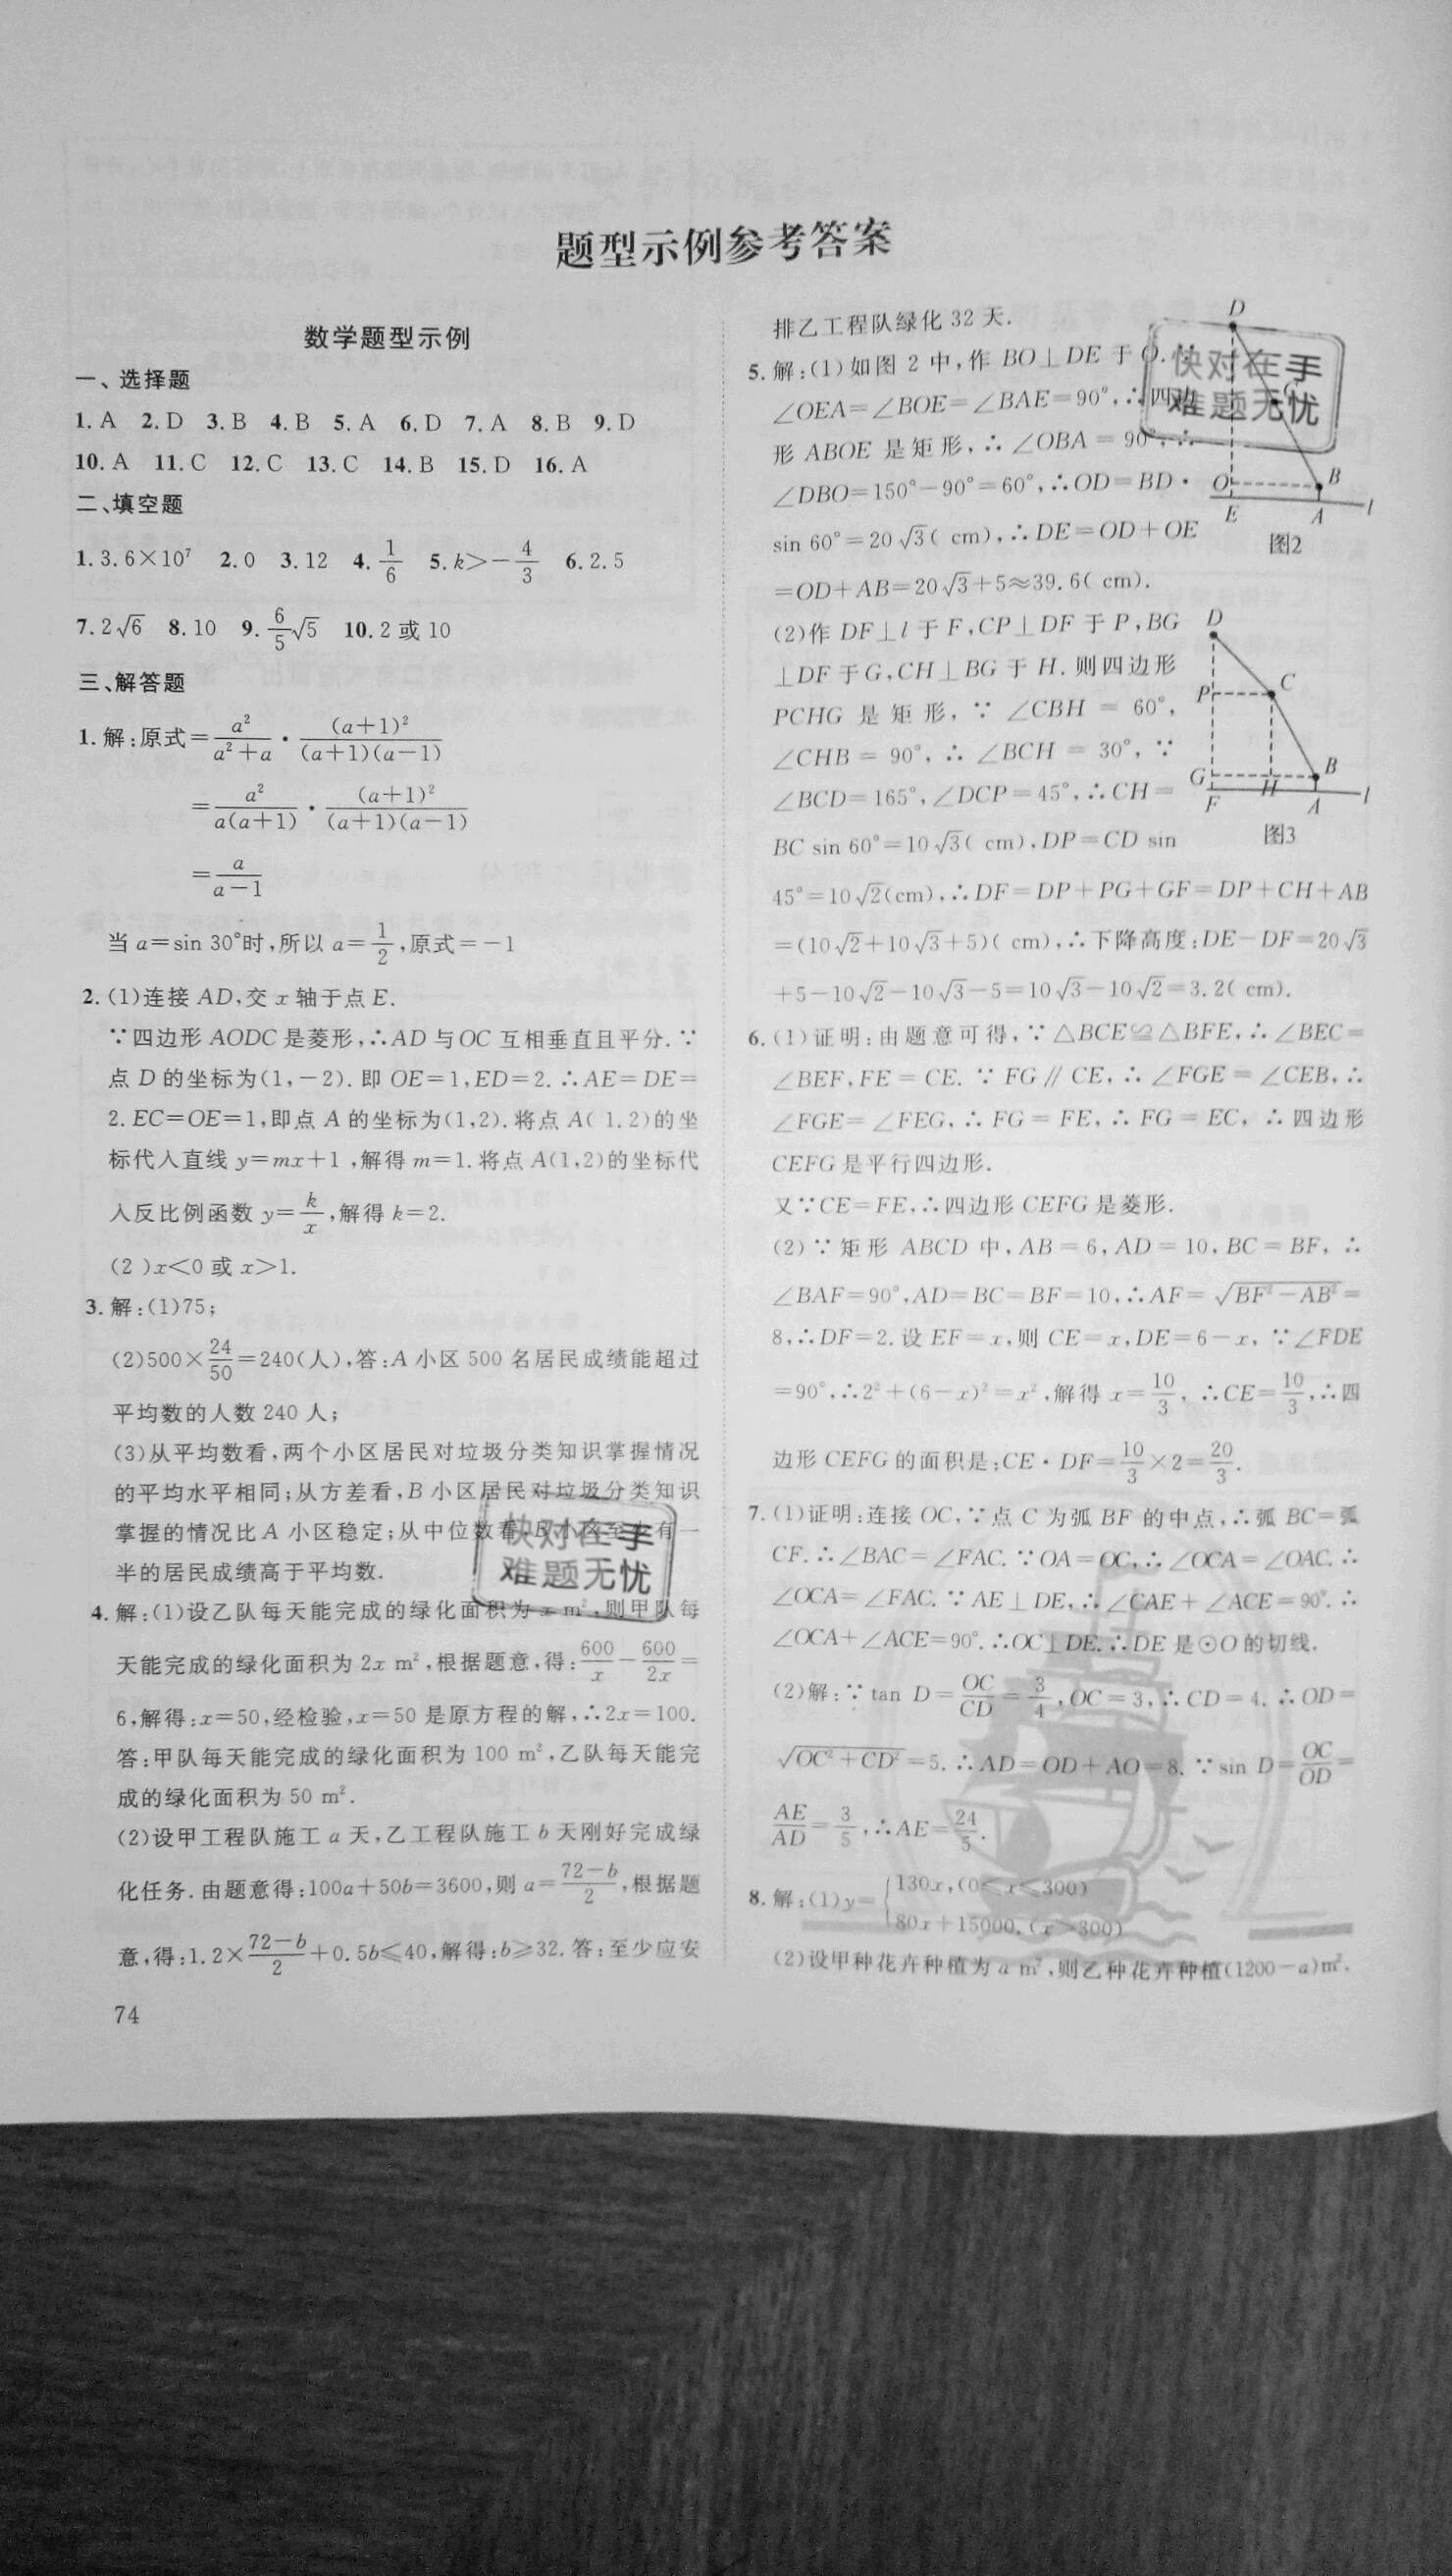 题型示例参考答案
数学题型示例
一、选择题
1. A 2. D 3. B 4. B 5. A 6. D 7. A 8. B 9. D
10. A 11. C 12. C 13. C 14. B 15. D 16. A
二、填空题
1. 3.6×10⁷ 2. 0 3. 12 4. 1/6 5. k>-4/3 6. 2.5
7. 2√6 8. 10 9. 6/5√5 10. 2 或 10
三、解答题
1. 解:原式=a²/(a²+a)·(a+1)²/((a+1)(a-1))
=a²/(a(a+1))·(a+1)²/((a+1)(a-1))
=a/(a-1)
当 a=sin 30°时,所以 a=1/2,原式=-1
2. (1)连接 AD,交 x 轴于点 E.
∵四边形 AODC 是菱形,∴AD 与OC 互相垂直且平分. ∵
点 D 的坐标为(1,-2). 即 OE=1,ED=2. ∴AE=DE=
2. EC=OE=1,即点 A 的坐标为(1,2). 将点 A( 1,2)的坐
标代入直线 y=mx+1 ,解得 m=1. 将点 A(1,2)的坐标代
入反比例函数 y=k/x,解得 k=2.
(2 )x<0 或 x>1.
3. 解:(1)75;
(2)500×24/50=240(人),答:A 小区 500 名居民成绩能超过
平均数的人数 240 人;
(3)从平均数看,两个小区居民对垃圾分类知识掌握情况
的平均水平相同;从方差看,B 小区居民对垃圾分类知识
掌握的情况比 A 小区稳定;从中位数看,B 小区至少有一
半的居民成绩高于平均数.
4. 解:(1)设乙队每天能完成的绿化面积为 x m²,则甲队每
天能完成的绿化面积为 2x m²,根据题意,得:600/x-600/2x=
6,解得:x=50,经检验,x=50 是原方程的解,∴2x=100.
答:甲队每天能完成的绿化面积为 100 m²,乙队每天能完
成的绿化面积为 50 m².
(2)设甲工程队施工 a 天,乙工程队施工 b 天刚好完成绿
化任务. 由题意得:100a+50b=3600,则 a=(72-b)/2,根据题
意,得:1.2×(72-b)/2+0.5b≤40,解得:b≥32. 答:至少应安
74
排乙工程队绿化 32 天.
5. 解:(1)如图 2 中,作 BO⊥DE 于 O.
∠OEA=∠BOE=∠BAE=90°,∴四边
形 ABOE 是矩形,∴∠OBA=90°,∴
∠DBO=150°-90°=60°,∴OD=BD·
sin 60°=20√3( cm),∴DE=OD+OE
=OD+AB=20√3+5≈39.6( cm).
D
C
O B
E A l
图2
(2)作 DF⊥l 于 F,CP⊥DF 于 P,BG
⊥DF 于 G,CH⊥BG 于 H. 则四边形
PCHG 是矩形,∵∠CBH=60°,
∠CHB=90°,∴∠BCH=30°,∵
∠BCD=165°,∠DCP=45°,∴CH=
BC sin 60°=10√3( cm),DP=CD sin
D
P C
G H B
F A l
图3
45°=10√2(cm),∴DF=DP+PG+GF=DP+CH+AB
=(10√2+10√3+5)( cm),∴下降高度:DE-DF=20√3
+5-10√2-10√3-5=10√3-10√2=3.2( cm).
6. (1)证明:由题意可得,∵△BCE≌△BFE,∴∠BEC=
∠BEF,FE=CE. ∵FG∥CE,∴∠FGE=∠CEB,∴
∠FGE=∠FEG,∴FG=FE,∴FG=EC,∴四边形
CEFG 是平行四边形.
又∵CE=FE,∴四边形 CEFG 是菱形.
(2)∵矩形 ABCD 中,AB=6,AD=10,BC=BF,∴
∠BAF=90°,AD=BC=BF=10,∴AF=√(BF²-AB²)=
8,∴DF=2. 设 EF=x,则 CE=x,DE=6-x,∵∠FDE
=90°,∴2²+(6-x)²=x²,解得 x=10/3,∴CE=10/3,∴四
边形 CEFG 的面积是:CE·DF=10/3×2=20/3.
7. (1)证明:连接 OC,∵点 C 为弧 BF 的中点,∴弧 BC=弧
CF. ∴∠BAC=∠FAC. ∵OA=OC,∴∠OCA=∠OAC. ∴
∠OCA=∠FAC. ∵AE⊥DE,∴∠CAE+∠ACE=90°. ∴
∠OCA+∠ACE=90°. ∴OC⊥DE. ∴DE 是⊙O 的切线.
(2)解:∵tan D=OC/CD=3/4,OC=3,∴CD=4. ∴OD=
√(OC²+CD²)=5. ∴AD=OD+AO=8. ∵sin D=OC/OD=
AE/AD=3/5,∴AE=24/5.
8. 解:(1)y={130x,(0≤x≤300)
80x+15000,(x>300)
(2)设甲种花卉种植为 a m²,则乙种花卉种植(1200-a)m².
快对在手
难题无忧
快对在手
难题无忧